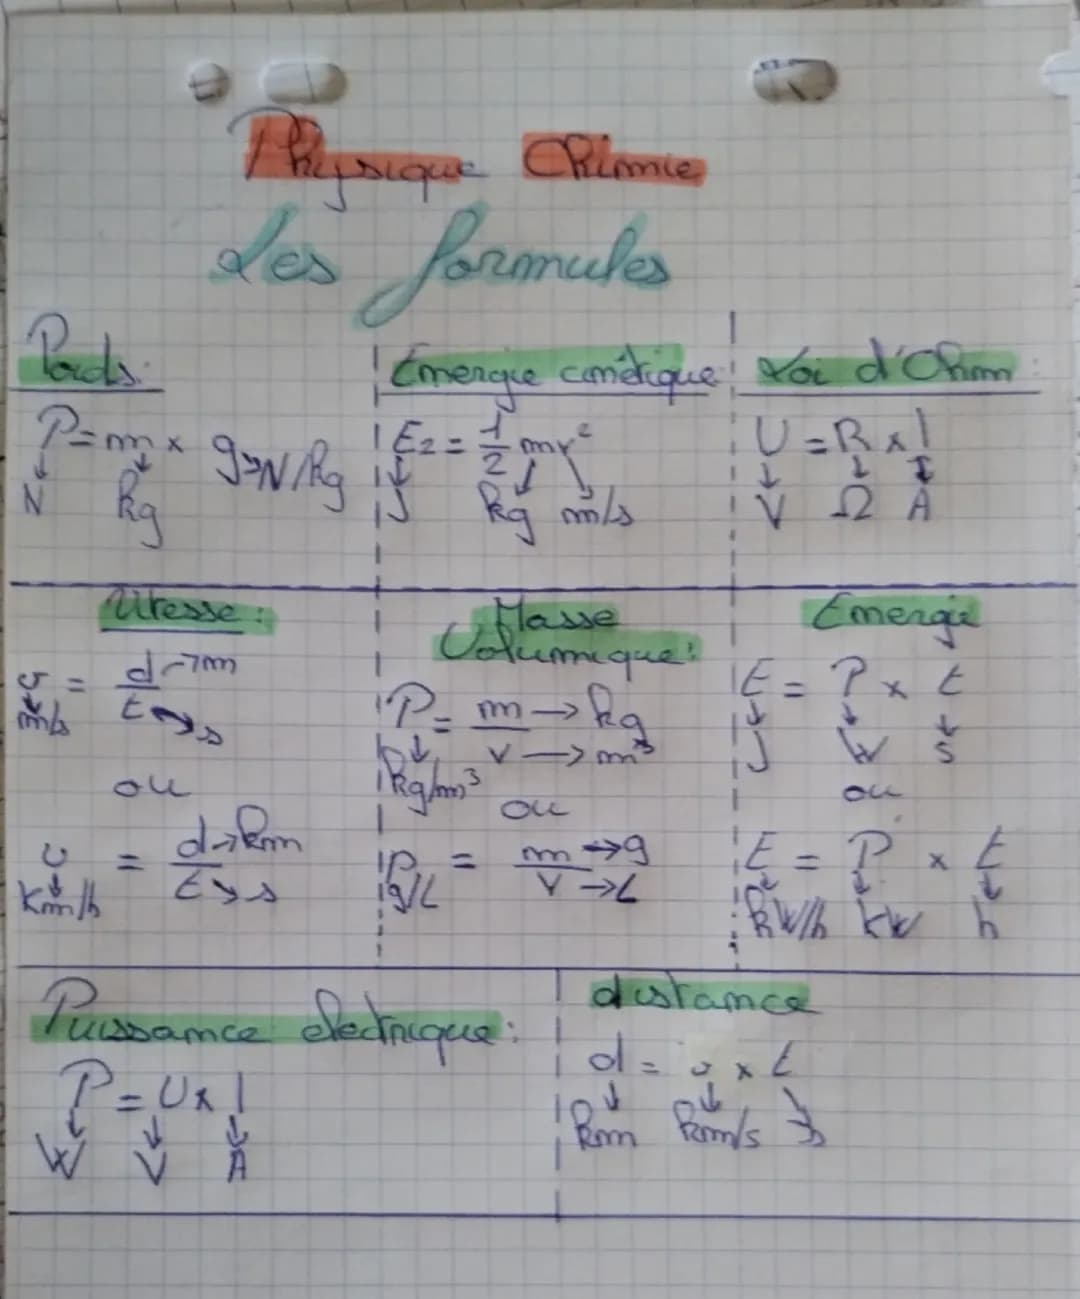 Physique Chimie
Les formules
Poids:
P = m x g → N/kg
↓ ↓
N kg
Energie cinétique:
E2 = 1/2 mv²
↓ ↓ ↓
J kg m/s
Loi d'Ohm:
U = R x I
↓ ↓ ↓
V Ω A
Vitesse:
v = d → m
m/s t → s
ou
v = d → km
↓ t → s
Km/h
Masse
Volumique:
P = m → kg
↓ v → m³
kg/m³
ou
P = m → g
g/L v → L
Energie
E = P x t
↓ ↓ ↓
J W s
ou
E = P x t
↓ ↓ ↓
kW/h kW h
Puissance électrique:
P = U x I
↓ ↓ ↓
W V A
distance
d = v x t
↓ ↓ ↓
km km/s s